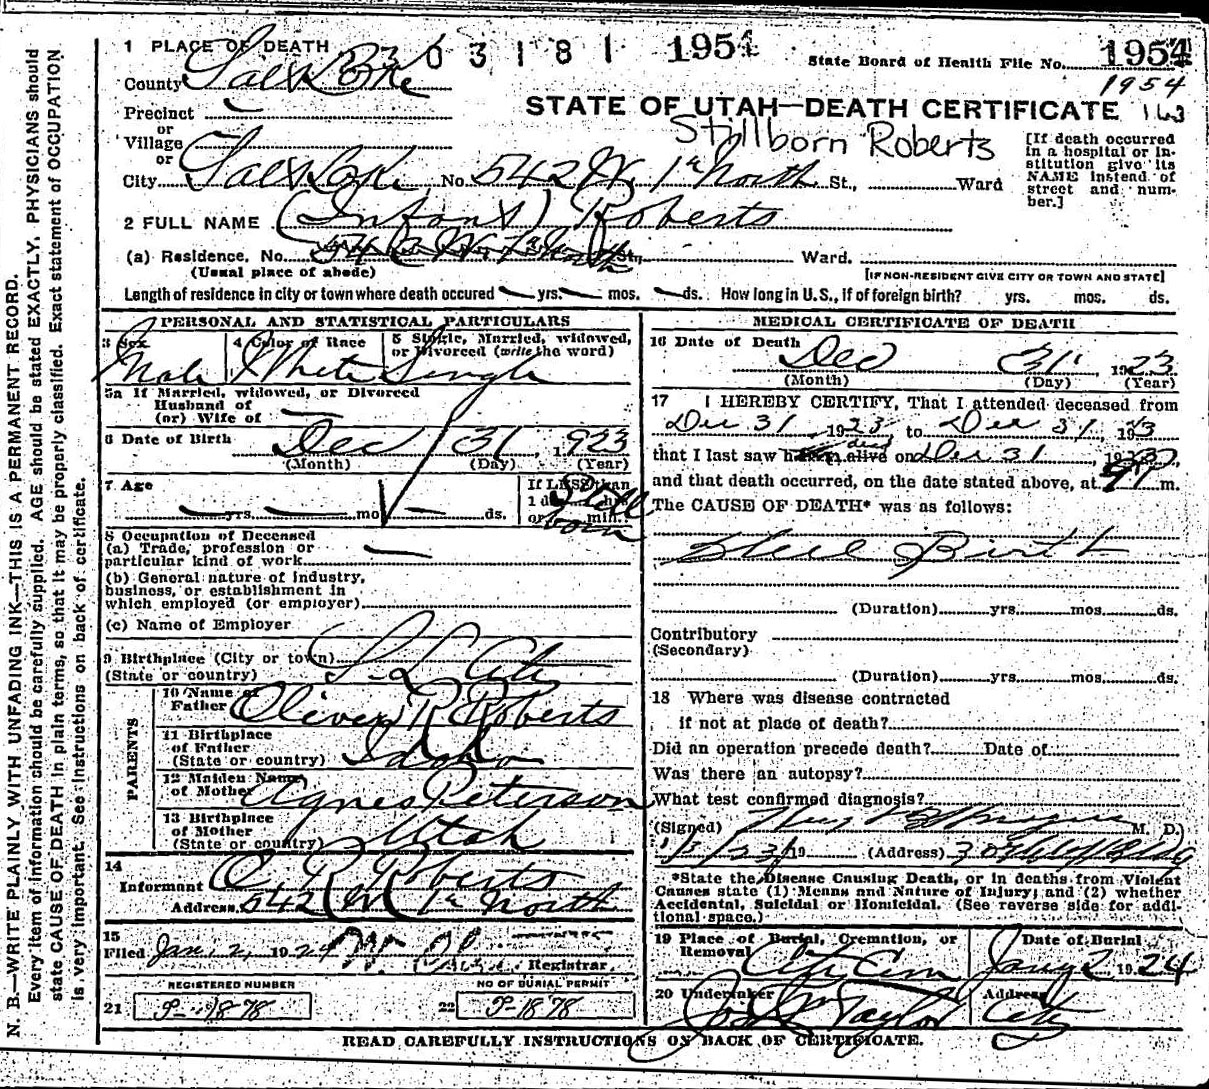 N. B.—WRITE PLAINLY WITH UNFADING INK—THIS IS A PERMANENT RECORD.
Every item of information should be carefully supplied. AGE should be stated EXACTLY. PHYSICIANS should
state CAUSE OF DEATH in plain terms, so that it may be properly classified. Exact statement of OCCUPATION
is very important. See instructions on back of certificate.
1 PLACE OF DEATH
0 3 1 8 1 1954
State Board of Health File No. 1954
County Salt Lake
1954
Precinct
STATE OF UTAH—DEATH CERTIFICATE 163
or
Village
Stillborn Roberts
or
[If death occurred
in a hospital or in-
stitution give its
NAME instead of
street and num-
ber.]
City Salt Lake, No. 542 W. 1st North St., Ward
2 FULL NAME (Infant) Roberts
(a) Residence. No. 542 W. 1st North St., Ward.
(Usual place of abode) [IF NON-RESIDENT GIVE CITY OR TOWN AND STATE]
Length of residence in city or town where death occured — yrs. — mos. — ds. How long in U.S., if of foreign birth? yrs. mos. ds.
PERSONAL AND STATISTICAL PARTICULARS
3 Sex 4 Color or Race 5 Single, Married, widowed,
or Divorced (write the word)
Male White Single
5a If Married, widowed, or Divorced
Husband of
(or) Wife of —
6 Date of Birth Dec 31, 1923
(Month) (Day) (Year)
7 Age If LESS than
1 day hrs.
— yrs. — mos. — ds. or min.
Still born
8 Occupation of Deceased
(a) Trade, profession or
particular kind of work —
(b) General nature of industry,
business, or establishment in
which employed (or employer)
(c) Name of Employer
9 Birthplace (City or town) S. L. City
(State or country)
PARENTS
10 Name of
Father Oliver R Roberts
11 Birthplace
of Father
(State or country) Idaho
12 Maiden Name
of Mother Agnes Peterson
13 Birthplace
of Mother
(State or country) Utah
14
Informant O R Roberts
Address 542 W 1st North
15
Filed Jan. 2, 1924 Registrar.
REGISTERED NUMBER NO OF BURIAL PERMIT
21 S-1878 22 S-1878
MEDICAL CERTIFICATE OF DEATH
16 Date of Death
Dec 31 1923
(Month) (Day) (Year)
17 I HEREBY CERTIFY, That I attended deceased from
Dec 31, 1923 to Dec 31, 1923
that I last saw h alive on Dec 31, 1923,
dead
and that death occurred, on the date stated above, at m.
The CAUSE OF DEATH* was as follows:
Still Birth
(Duration) yrs. mos. ds.
Contributory
(Secondary)
(Duration) yrs. mos. ds.
18 Where was disease contracted
if not at place of death?
Did an operation precede death? Date of
Was there an autopsy?
What test confirmed diagnosis?
(Signed) M. D.
19 (Address) Bldg
*State the Disease Causing Death, or in deaths from Violent
Causes state (1) Means and Nature of Injury; and (2) whether
Accidental, Suicidal or Homicidal. (See reverse side for addi-
tional space.)
19 Place of Burial, Cremation, or
Removal Date of Burial
City Cem Jany 2 1924
20 Undertaker Address
Taylor City
READ CAREFULLY INSTRUCTIONS ON BACK OF CERTIFICATE.